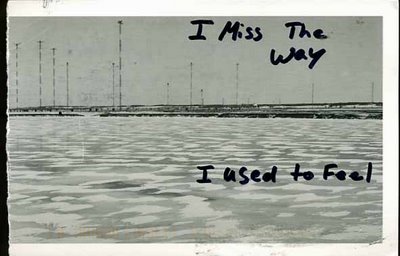 I Miss The
Way
I used to Feel